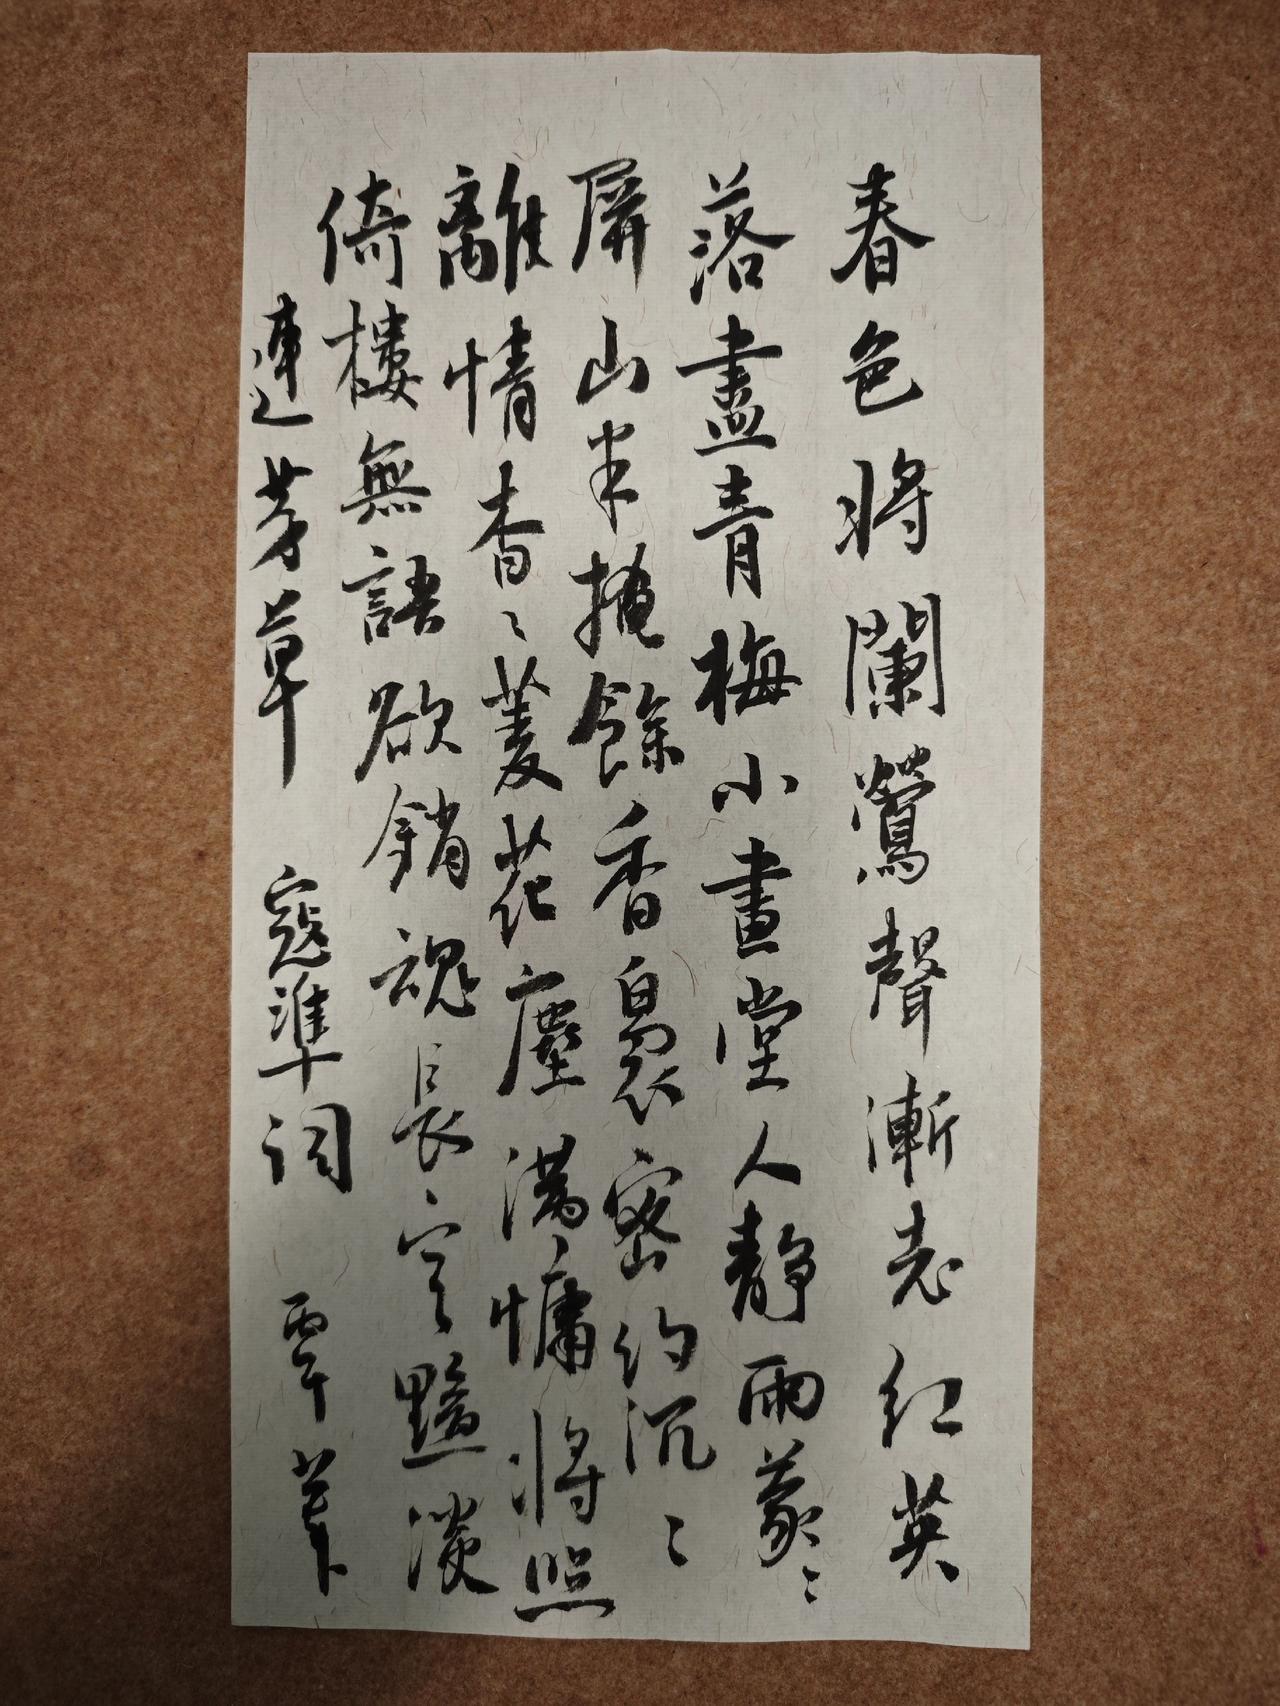 春色將闌鶯聲漸老紅英
落盡青梅小畫堂人靜雨蒙〻
屏山半掩餘香裊密約沉〻
離情杳〻菱花塵滿慵將照
倚樓無語欲銷魂長空黯淡
連芳草 寇準詞